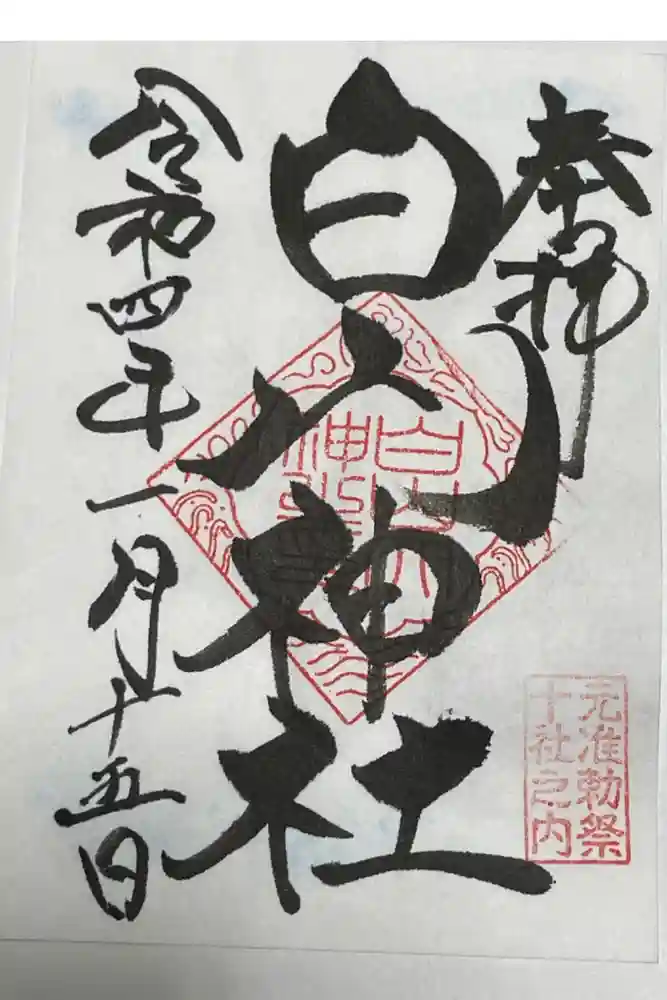 奉拝
白山神社
令和四年一月十五日
元准勅祭
十社之内